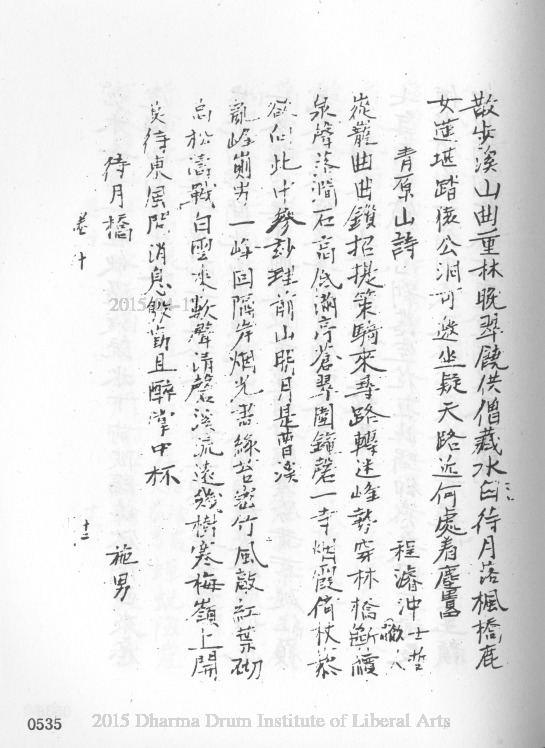 散步溪山曲重林晚翠饒供僧藏水白待月落楓橋鹿
女蓮堪踏猿公洞可邀坐疑天路近何處着塵囂
青原山詩 程濬沖士哲 歙人
嵸巃曲曲鎖招提策騎來尋路轉迷峰勢穿林橋斷續
泉聲落澗石高低滿亭蒼翠圍鐘磬一寺烟霞倚杖藜
欲向此中參玅理前山明月是曹溪
亂峰一峰回隔岸烟光書綠苔密竹風敲紅葉砌
高松濤戰白雲來聲清磬溪流遠幾樹寒梅嶺上開
莫待東風問消息且醉掌中杯
待月橋 施男
卷十 十二
0535
2015 Dharma Drum Institute of Liberal Arts